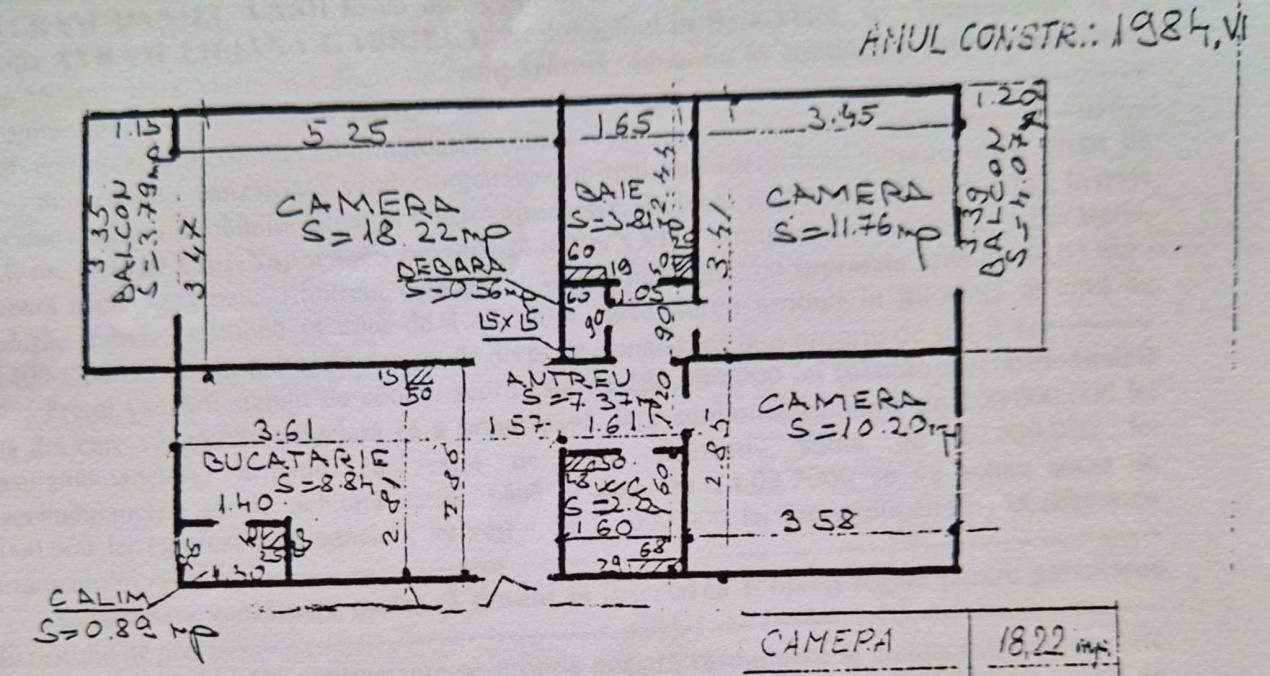 ANUL CONSTR.: 1984, VI
1.15
5.25
1.65
3.45
1.20
3.35
BALCON
S=3.79mp
3.47
CAMERA
S=18.22mp
BAIE
S=3.81mp
2.44
3.41
CAMERA
S=11.76mp
3.39
BALCON
S=4.07mp
DEBARA
S=0.56mp
15x15
60
19
50
60
1.05
90
90
15
50
ANTREU
S=7.37mp
1.20
1.57
1.61
CAMERA
S=10.20mp
2.85
3.58
3.61
BUCATARIE
S=8.84
2.81
2.86
1.40
CALIM
S=0.89 mp
50
48
W.C.
60
1.60
68
29
CAMERA
18,22 mp.